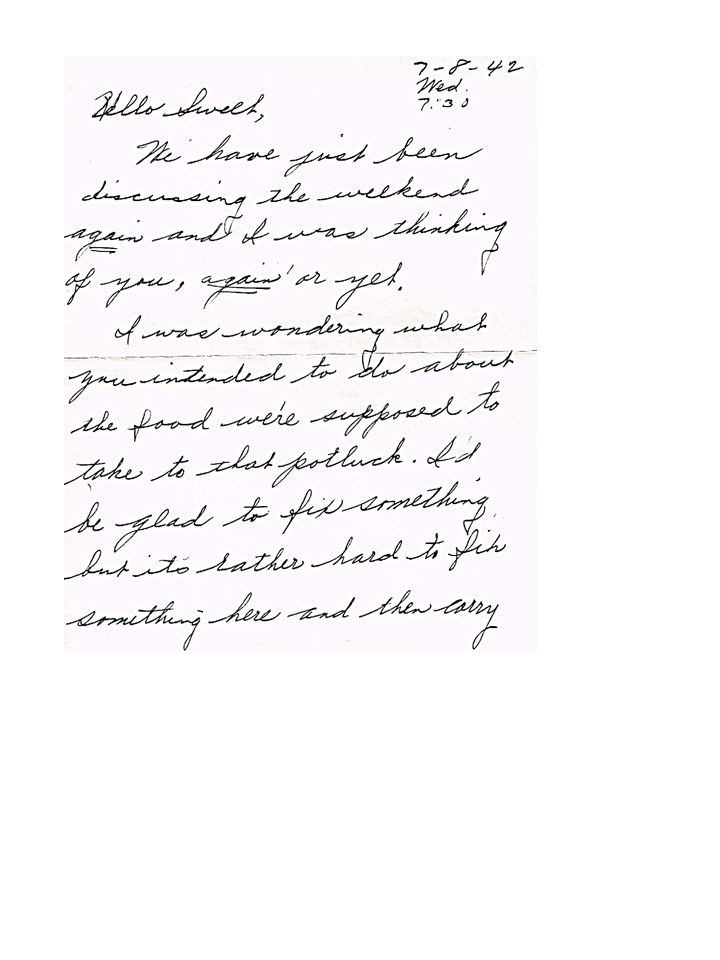 7-8-42
Wed.
7:30
Hello Sweet,
We have just been
discussing the weekend
again and I was thinking
of you, again or yet.
I was wondering what
you intended to do about
the food we're supposed to
take to that potluck. I'd
be glad to fix something
but it's rather hard to fix
something here and then carry